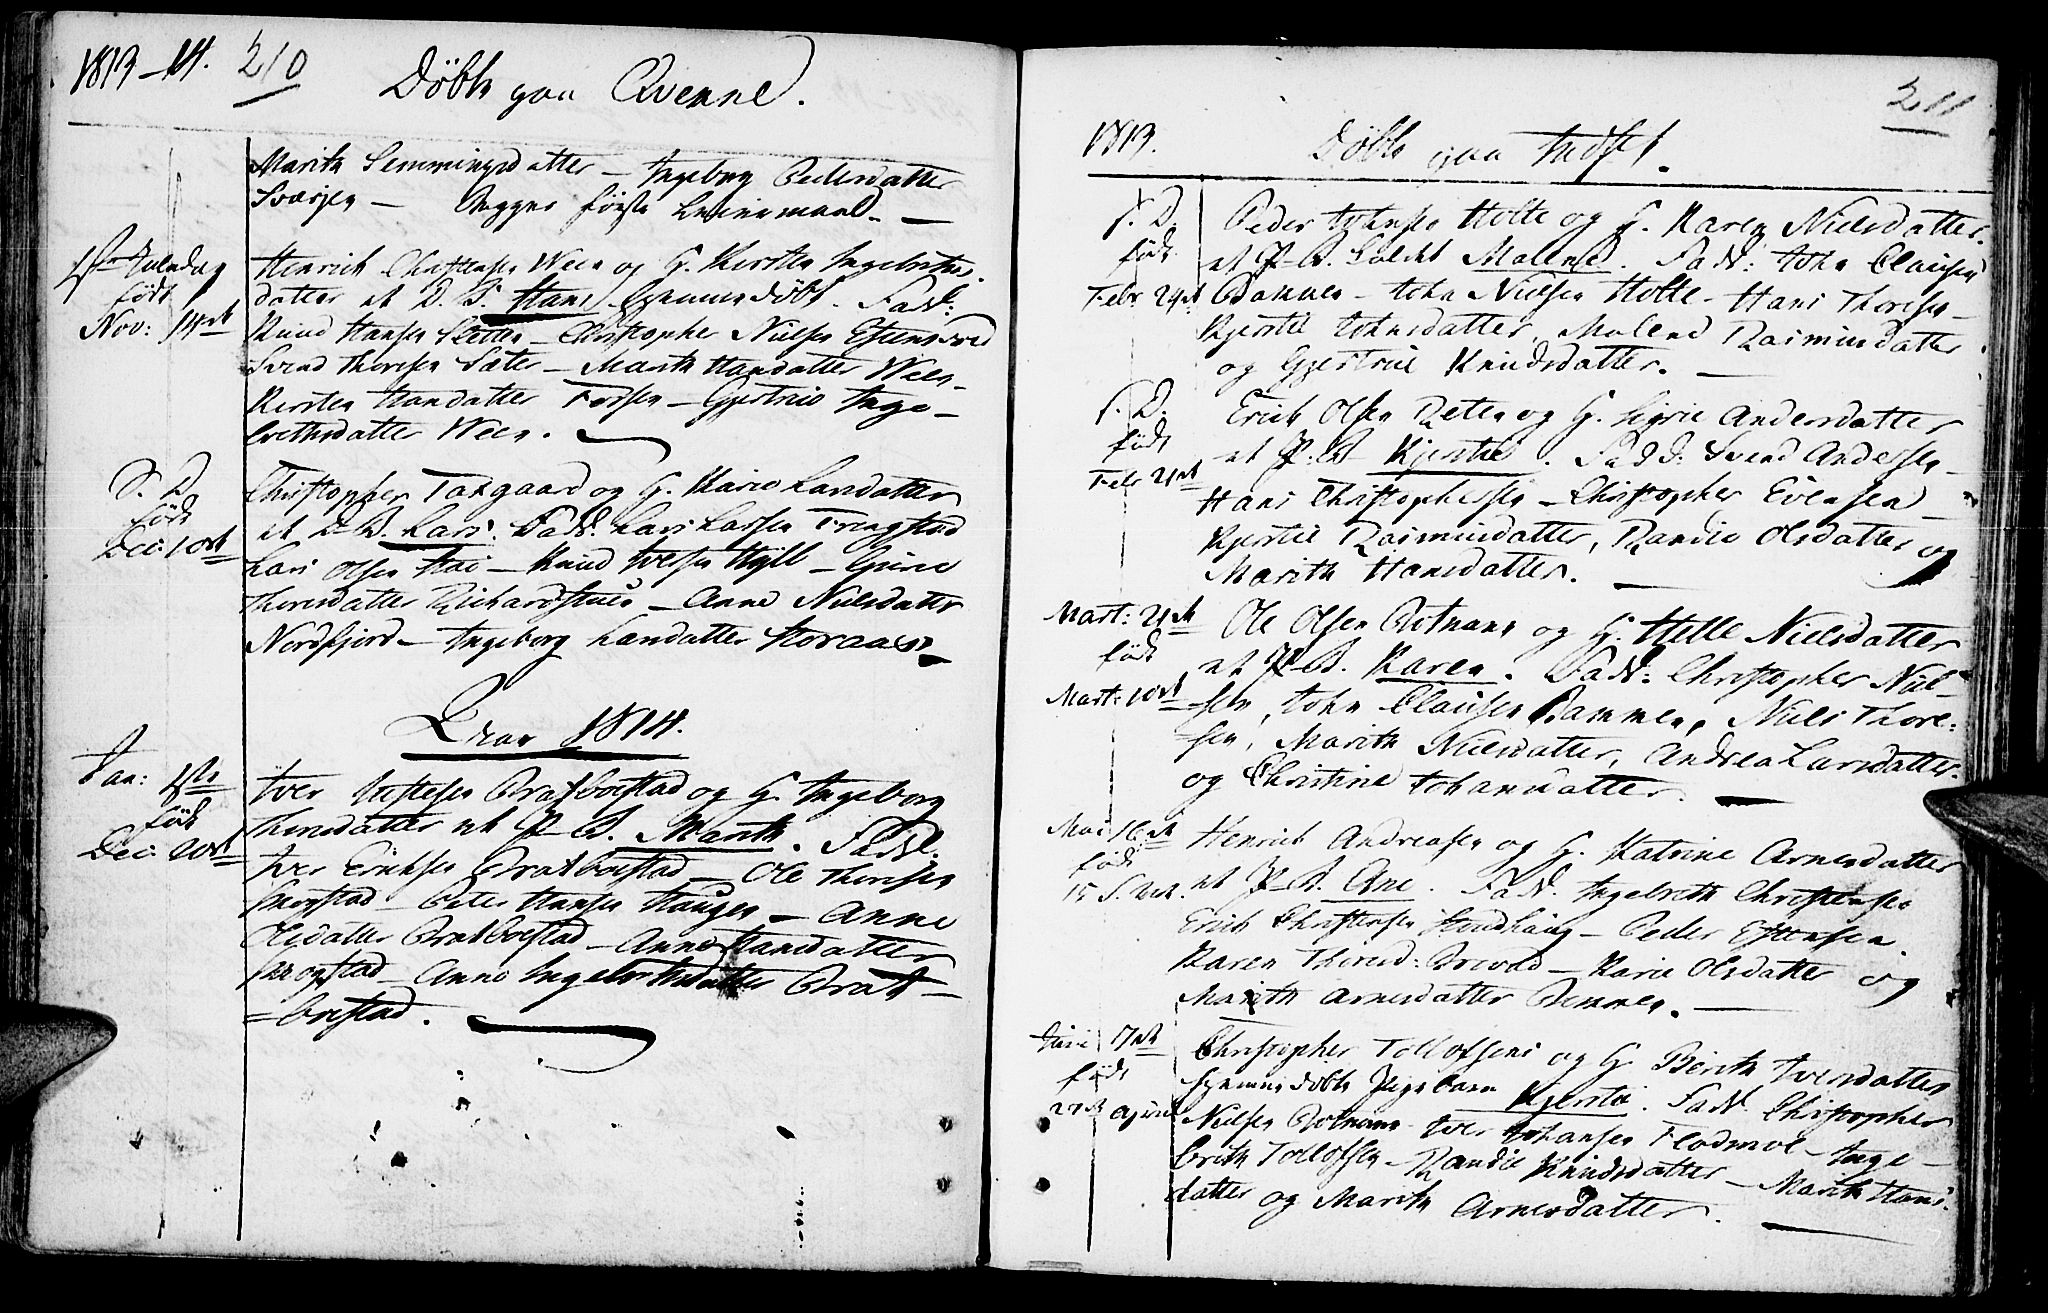 1813-14. 210
Døbte paa Qvenne.
Marith Semmingsdatter - Ingeborg Pedersdatter
Svarjen - Begges første Leiermaal. -
1ste Juledag
født
Nov: 14de
Henrich Christensen Ween og H. Kirsten Ingebrikts-
datter et D. B. Hans hjemmedøbt. Fadd:
Knud Hansen Sletten - Christopher Nielsen Estensvod
Svend Thoresen Sæter - Marith Hansdatter Ween -
Kirsten Hansdatter Fossen - Gjertrud Inge-
brethsdatter Ween.
S. D.
født
Dec: 10de
Christopher Taxgaard og H. Marie Larsdatter
et D. B. Lars. Fadd. Lars Larsen Tringstad
Lars Olsen Hæ - Knud Iversen Hylb - Guru
Thoresdatter Richardstuen - Anne Nielsdatter
Nordfjord - Ingeborg Larsdatter Storaas.
Aar 1814.
Jan: 1ste
født
Dec: 20de
Iver Estensen Bratbøestad og H. Ingeborg
Thoresdatter et P. B. Marith. Fadd.
Iver Erichsen Bratbøestad - Ole Thoresen
Skogstad - Peter Hansen Haugen - Anne
Olsdatter Bratbøestad - Anne Hansdatter
Skogstad - Anne Ingebrethsdatter Brat-
=bøestad.
211
1813. Døbte paa Indset.
S. D.
født
Febr 24de
Peder Johnsen Holte og H. Karen Nielsdatter
et P. B. kaldet Malene. Fadd: John Clausen
Bammen - John Nielsen Holte - Hans Thoresen -
Kjersti Johnsdatter, Malene Rasmusdatter
og Gjertrue Knudsdatter. -
S. D.
født
Febr 21de
Erich Olsen Reten og H. Sigrie Andersdatter
et P. B. Kjersti. Fadd: Svend Andersen -
Hans Christophersen - Christopher Evensen -
Kjersti Rasmusdatter, Randie Olsdatter og
Marith Hansdatter. -
Mart: 21de
født
Mart: 10de
Ole Olsen Botnans og H. Helle Nielsdatter
et P. B. Karen. Fadd: Christopher Niel-
sen, John Clausen Bammen, Niels Thore-
sen, Marith Nielsdatter, Andrea Larsdatter
og Christine Johansdatter.
Mai 16de
født
15 S. M.
Henrich Andreasen og H. Katrine Arnesdatter
et P. B. Ane. Fadd. Ingebrith Christensen
Erich Christensen Sundhaug - Peder Estensen
Karen Thoresd: Brevad - Karie Olsdatter og
Marith Arnesdatter Remmen. -
Juni 7de
født
27de April
Christopher Tollofsens og H. Berith Iversdatter
hjemmedøbte Pigebarn Kjersti. Fadd. Christopher
Nielsen Botnans - Iver Johansen Fladmoe - Inge-
brith Tollofsen - Randie Knudsdatter - Marith Hans-
datter og Marith Arnesdatter.